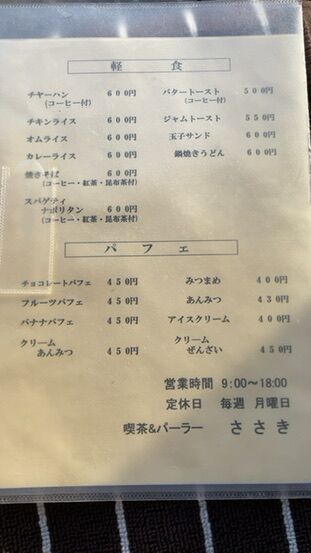 軽 食
チャーハン ６００円
(コーヒー付)
チキンライス ６００円
オムライス ６００円
カレーライス ６００円
焼きそば ６００円
(コーヒー・紅茶・昆布茶付)
スパゲティ
ナポリタン ６００円
(コーヒー・紅茶・昆布茶付)
バタートースト ５００円
(コーヒー付)
ジャムトースト ５５０円
玉子サンド ６００円
鍋焼きうどん ６００円
パ フ ェ
チョコレートパフェ ４５０円
フルーツパフェ ４５０円
バナナパフェ ４５０円
クリーム
あんみつ ４５０円
みつまめ ４００円
あんみつ ４３０円
アイスクリーム ４００円
クリーム
ぜんざい ４５０円
営業時間 9:00〜18:00
定休日 毎週 月曜日
喫茶&パーラー さ さ き